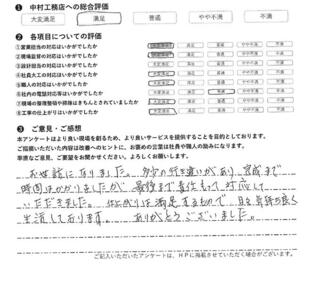 ❶ 中村工務店への総合評価
大変満足 満足 普通 やや不満 不満
❷ 各項目についての評価
①営業担当の対応はいかがでしたか 大変満足 満足 普通 やや不満 不満
②現場監督の対応はいかがでしたか 大変満足 満足 普通 やや不満 不満
③設計担当の対応はいかがでしたか 大変満足 満足 普通 やや不満 不満
④社員大工の対応はいかがでしたか 大変満足 満足 普通 やや不満 不満
⑤職人の対応はいかがでしたか 大変満足 満足 普通 やや不満 不満
⑥社内の電話対応等はいかがでしたか 大変満足 満足 普通 やや不満 不満
⑦現場の整理整頓や掃除はきちんとされていましたか 大変満足 満足 普通 やや不満 不満
⑧工事の仕上がりはいかがでしたか 大変満足 満足 普通 やや不満 不満
❸ ご意見・ご感想
本アンケートはより良い現場を創るため、より良いサービスを提供することを目的としております。
ご指摘いただいた内容は改善へのヒントに、お褒めの言葉は社員や職人の励みになります。
率直なご意見、ご要望をお聞かせください。よろしくお願いします。
お世話になりました。多少の行き違いがあり、完成まで
時間はかかりましたが 最後まで責任もって対応して
いただきました。仕上がりは満足するもので 日々気持ち良く
生活しております。 ありがとうございました。
ご記入いただいたアンケートは、HPに掲載させていただく場合がございます。